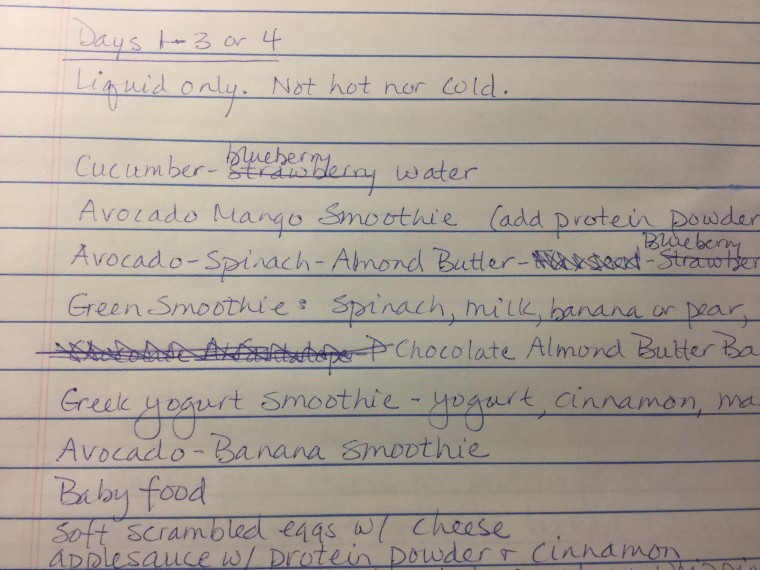 Days 1-3 or 4
Liquid only. Not hot nor cold.
blueberry
Cucumber-strawberry water
Avocado Mango Smoothie (add protein powder
Blueberry
Avocado-Spinach-Almond Butter-
Green Smoothie: spinach, milk, banana or pear,
Chocolate Almond Butter Ba
Greek yogurt smoothie - yogurt, cinnamon, ma
Avocado-Banana smoothie
Baby food
Soft scrambled eggs w/ cheese
applesauce w/ protein powder + cinnamon